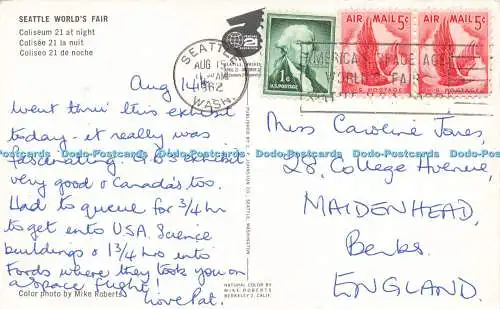 SEATTLE WORLD'S FAIR
Coliseum 21 at night
Colisée 21 la nuit
Coliseo 21 de noche
Aug 14th
Went thru' this exhibit
today - it really was
fascinating. G.B's exhibit
very good & Canada's too.
Had to queue for 3/4 hr
to get into U.S.A. Science
buildings & 1 3/4 hrs into
Fords where they took you on
a space flight!
Love Pat.
Color photo by Mike Roberts
NATURAL COLOR BY
MIKE ROBERTS
BERKELEY 2, CALIF.
SEATTLE
AUG 15
AM
1962
WASH.
21
AMERICA'S SPACE AGE
WORLD'S FAIR
1¢
U.S. POSTAGE
AIR MAIL 5¢
U.S. POSTAGE
AIR MAIL 5¢
U.S. POSTAGE
Miss Caroline Jones,
28, College Avenue,
MAIDENHEAD,
Berks.
ENGLAND.
Dodo-Postcards Dodo-Postcards Dodo-Postcards Dodo-Postcards Dodo-Postcards